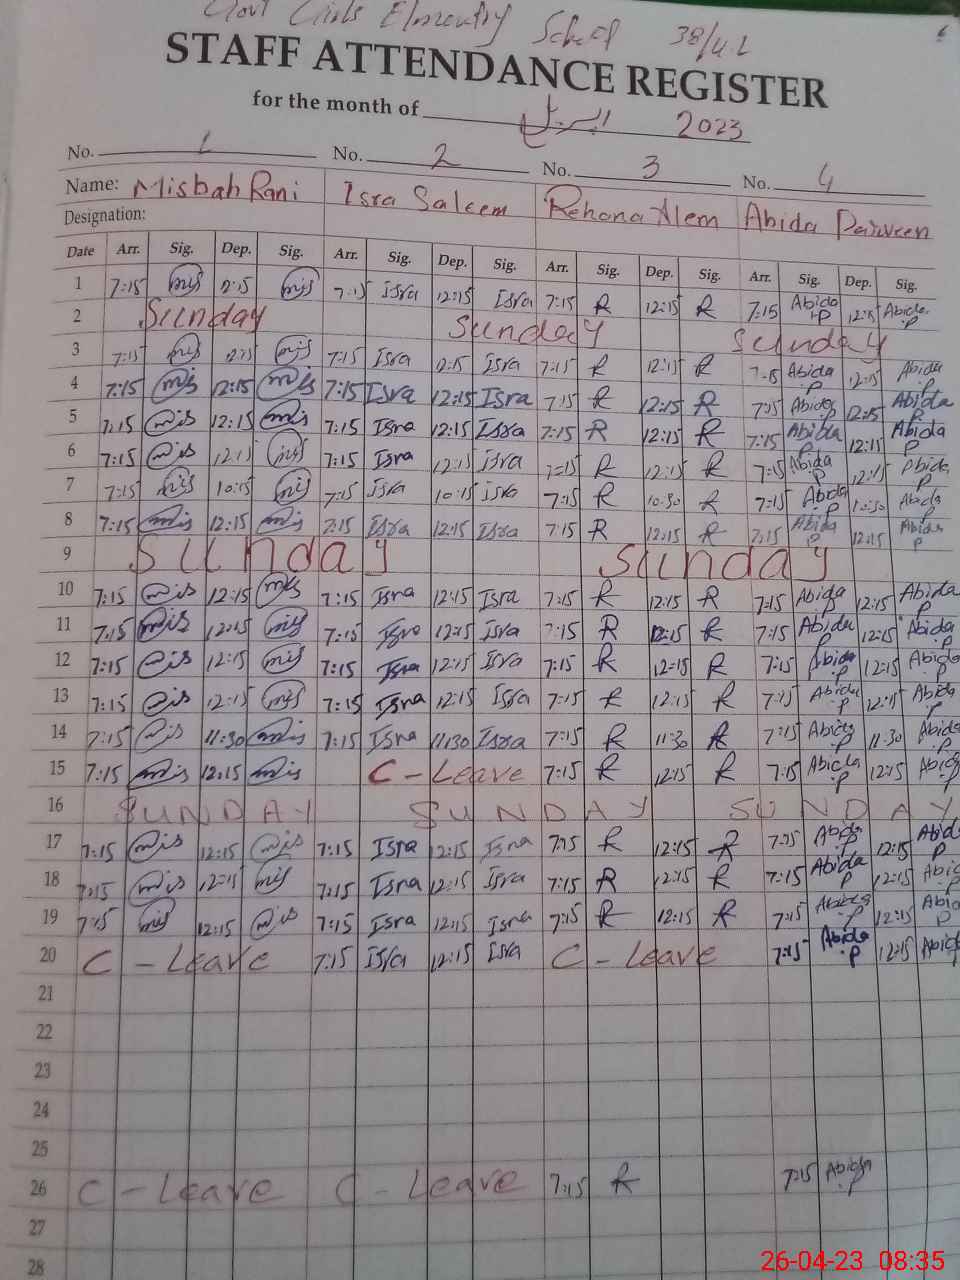 Govt Girls Elementry School 38/4.L
STAFF ATTENDANCE REGISTER
for the month of اپریل 2023
No. 1 No. 2 No. 3 No. 4
Name: Misbah Rani Isra Saleem Rehana Alem Abida Parveen
Designation:
Date Arr. Sig. Dep. Sig. Arr. Sig. Dep. Sig. Arr. Sig. Dep. Sig. Arr. Sig. Dep. Sig.
1 7:15 mis 12:15 mis 7:15 Isra 12:15 Isra 7:15 R 12:15 R 7:15 Abida .P 12:15 Abida .P
2 Sunday Sunday Sunday
3 7:15 mis 12:15 mis 7:15 Isra 12:15 Isra 7:15 R 12:15 R 7:15 Abida .P 12:15 Abida .P
4 7:15 mis 12:15 mis 7:15 Isra 12:15 Isra 7:15 R 12:15 R 7:15 Abida .P 12:15 Abida P
5 7:15 mis 12:15 mis 7:15 Isra 12:15 Isra 7:15 R 12:15 R 7:15 Abida P 12:15 Abida P
6 7:15 mis 12:15 mis 7:15 Isra 12:15 Isra 7:15 R 12:15 R 7:15 Abida P 12:15 Abida P
7 7:15 mis 10:15 mis 7:15 Isra 10:15 Isra 7:15 R 10:30 R 7:15 Abida P 10:30 Abida P
8 7:15 mis 12:15 mis 7:15 Isra 12:15 Isra 7:15 R 12:15 R 7:15 Abida P 12:15 Abida P
9 Sunday Sunday
10 7:15 mis 12:15 mis 7:15 Isra 12:15 Isra 7:15 R 12:15 R 7:15 Abida P 12:15 Abida P
11 7:15 mis 12:15 mis 7:15 Isra 12:15 Isra 7:15 R 12:15 R 7:15 Abida P 12:15 Abida P
12 7:15 mis 12:15 mis 7:15 Isra 12:15 Isra 7:15 R 12:15 R 7:15 Abida P 12:15 Abida P
13 7:15 mis 12:15 mis 7:15 Isra 12:15 Isra 7:15 R 12:15 R 7:15 Abida .P 12:15 Abida P
14 7:15 mis 11:30 mis 7:15 Isra 11:30 Isra 7:15 R 11:30 R 7:15 Abida .P 11:30 Abida P
15 7:15 mis 12:15 mis C-Leave 7:15 R 12:15 R 7:15 Abida .P 12:15 Abida P
16 SUNDAY SUNDAY SUNDAY
17 7:15 mis 12:15 mis 7:15 Isra 12:15 Isra 7:15 R 12:15 R 7:15 Abida P 12:15 Abida P
18 7:15 mis 12:15 mis 7:15 Isra 12:15 Isra 7:15 R 12:15 R 7:15 Abida P 12:15 Abida P
19 7:15 mis 12:15 mis 7:15 Isra 12:15 Isra 7:15 R 12:15 R 7:15 Abida .P 12:15 Abida P
20 C-Leave 7:15 Isra 12:15 Isra C-Leave 7:15 Abida .P 12:15 Abida .P
21
22
23
24
25
26 C-Leave C-Leave 7:15 R 7:15 Abida .P
27
28
26-04-23 08:35